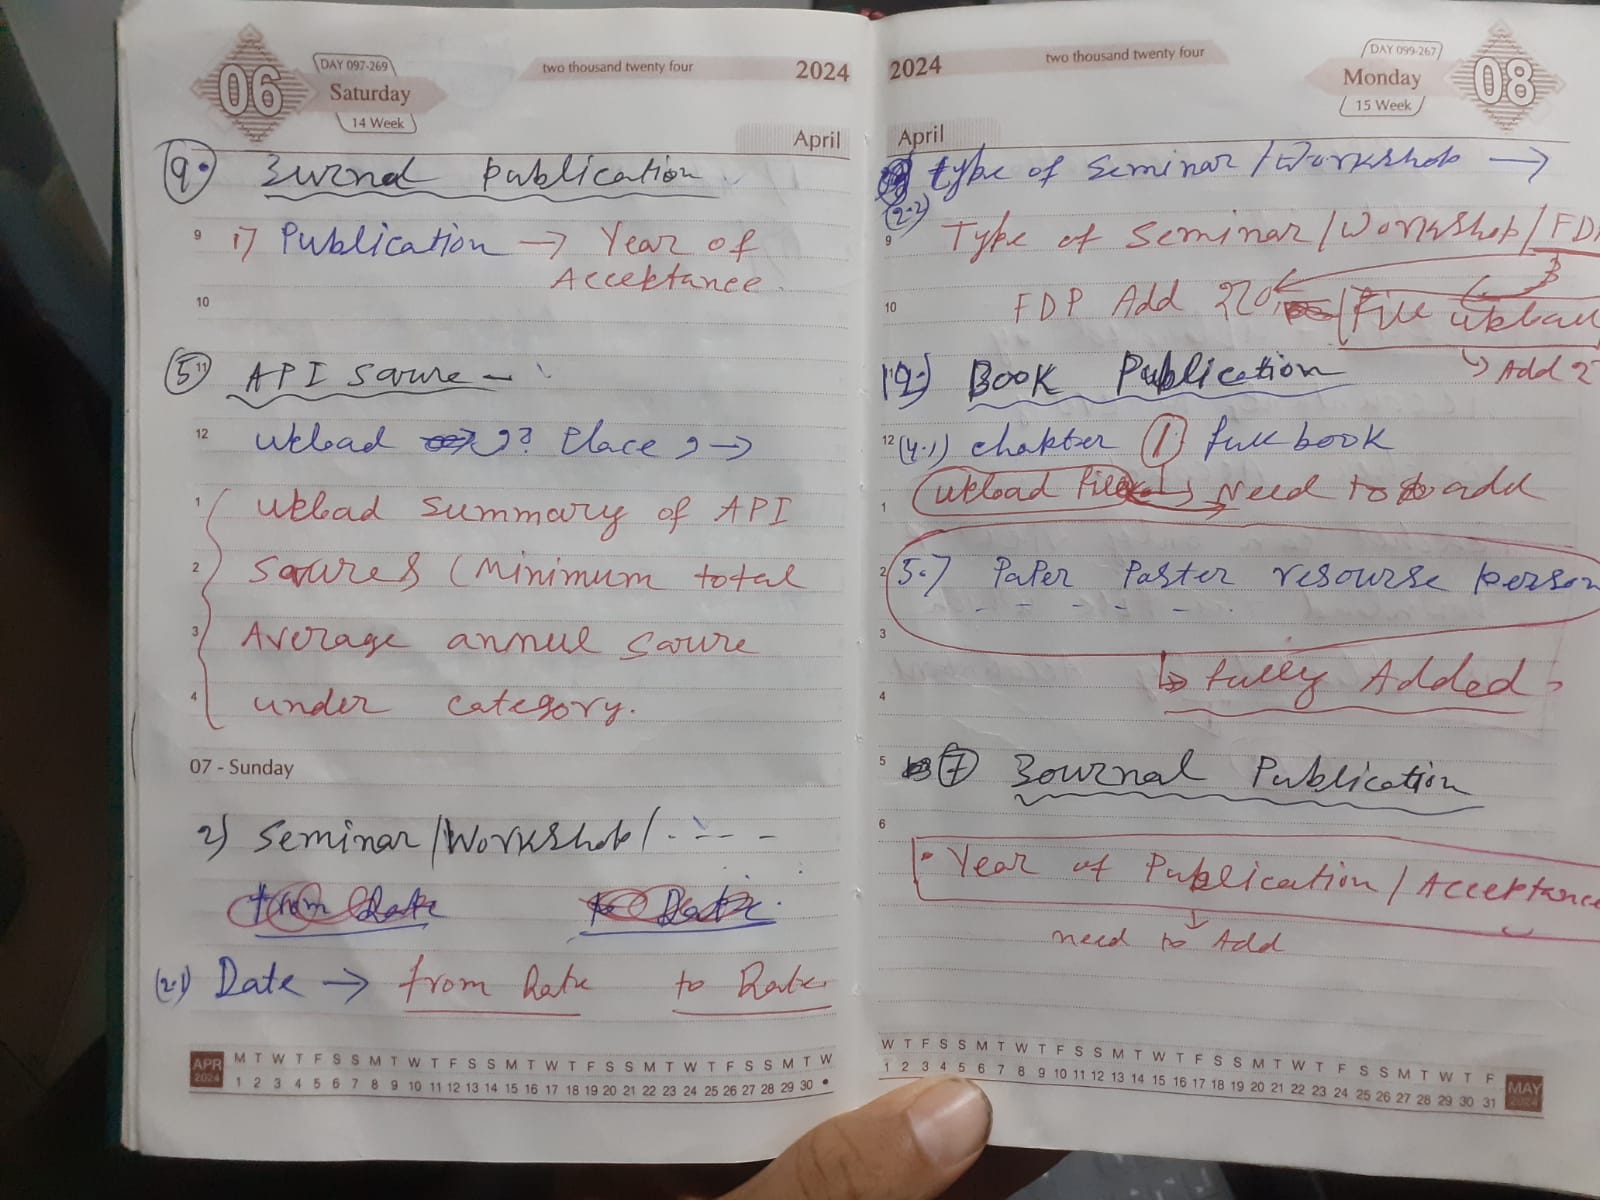 06
DAY 097-269
Saturday
14 Week
two thousand twenty four
2024
April
9. Zurnd Publication
9 1) Publication → Year of
Acceptance.
10
5 11 API Scure -
12 Upload ?? Place , →
1 Upload Summary of API
2 Scures (Minimum total
3 Average annul Scure
4 under category.
07 - Sunday
2) Seminar/Workshop/ - - - -
from Date to Date
(2.1) Date → from Date to Date.
APR 2024
M T W T F S S M T W T F S S M T W T F S S M T W T F S S M T W
1 2 3 4 5 6 7 8 9 10 11 12 13 14 15 16 17 18 19 20 21 22 23 24 25 26 27 28 29 30 •
2024
two thousand twenty four
DAY 099-267
Monday
15 Week
08
April
type of Seminar/Workshop →
(2.2)
9 Type of Seminar/Workshop/FD
10 FDP Add / File upload
↳ Add
11 Book Publication
12 (4.1) chapter 1. full book
1 Upload File → Need to add
2 5.) Paper Paster resourse person
3
↳ fully Added
4
5 7 Journal Publication
6
• Year of Publication / Acceptance
↓
need to Add
W T F S S M T W T F S S M T W T F S S M T W T F S S M T W T F
1 2 3 4 5 6 7 8 9 10 11 12 13 14 15 16 17 18 19 20 21 22 23 24 25 26 27 28 29 30 31
MAY 2024